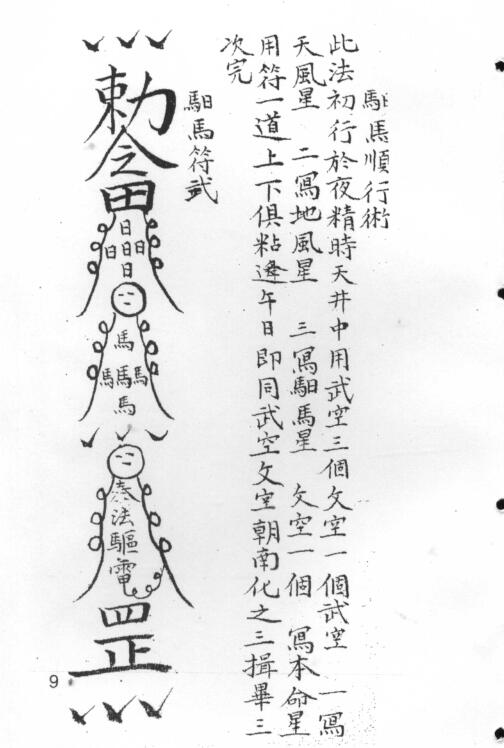 馹馬順行術
此法初行於夜精時天井中用武空三個文空一個武空 一寫
天風星 二寫地風星 三寫馹馬星 文空一個 寫本命星
用符一道上下俱粘逢午日即同武空文空朝南化之三揖畢三
次完
馹馬符式
勅令
田
日
日日日
日
馬
馬馬馬
馬
奉
法
驅
雷
罡
9